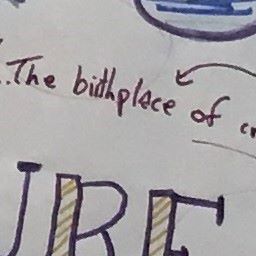 The birthplace of
URE